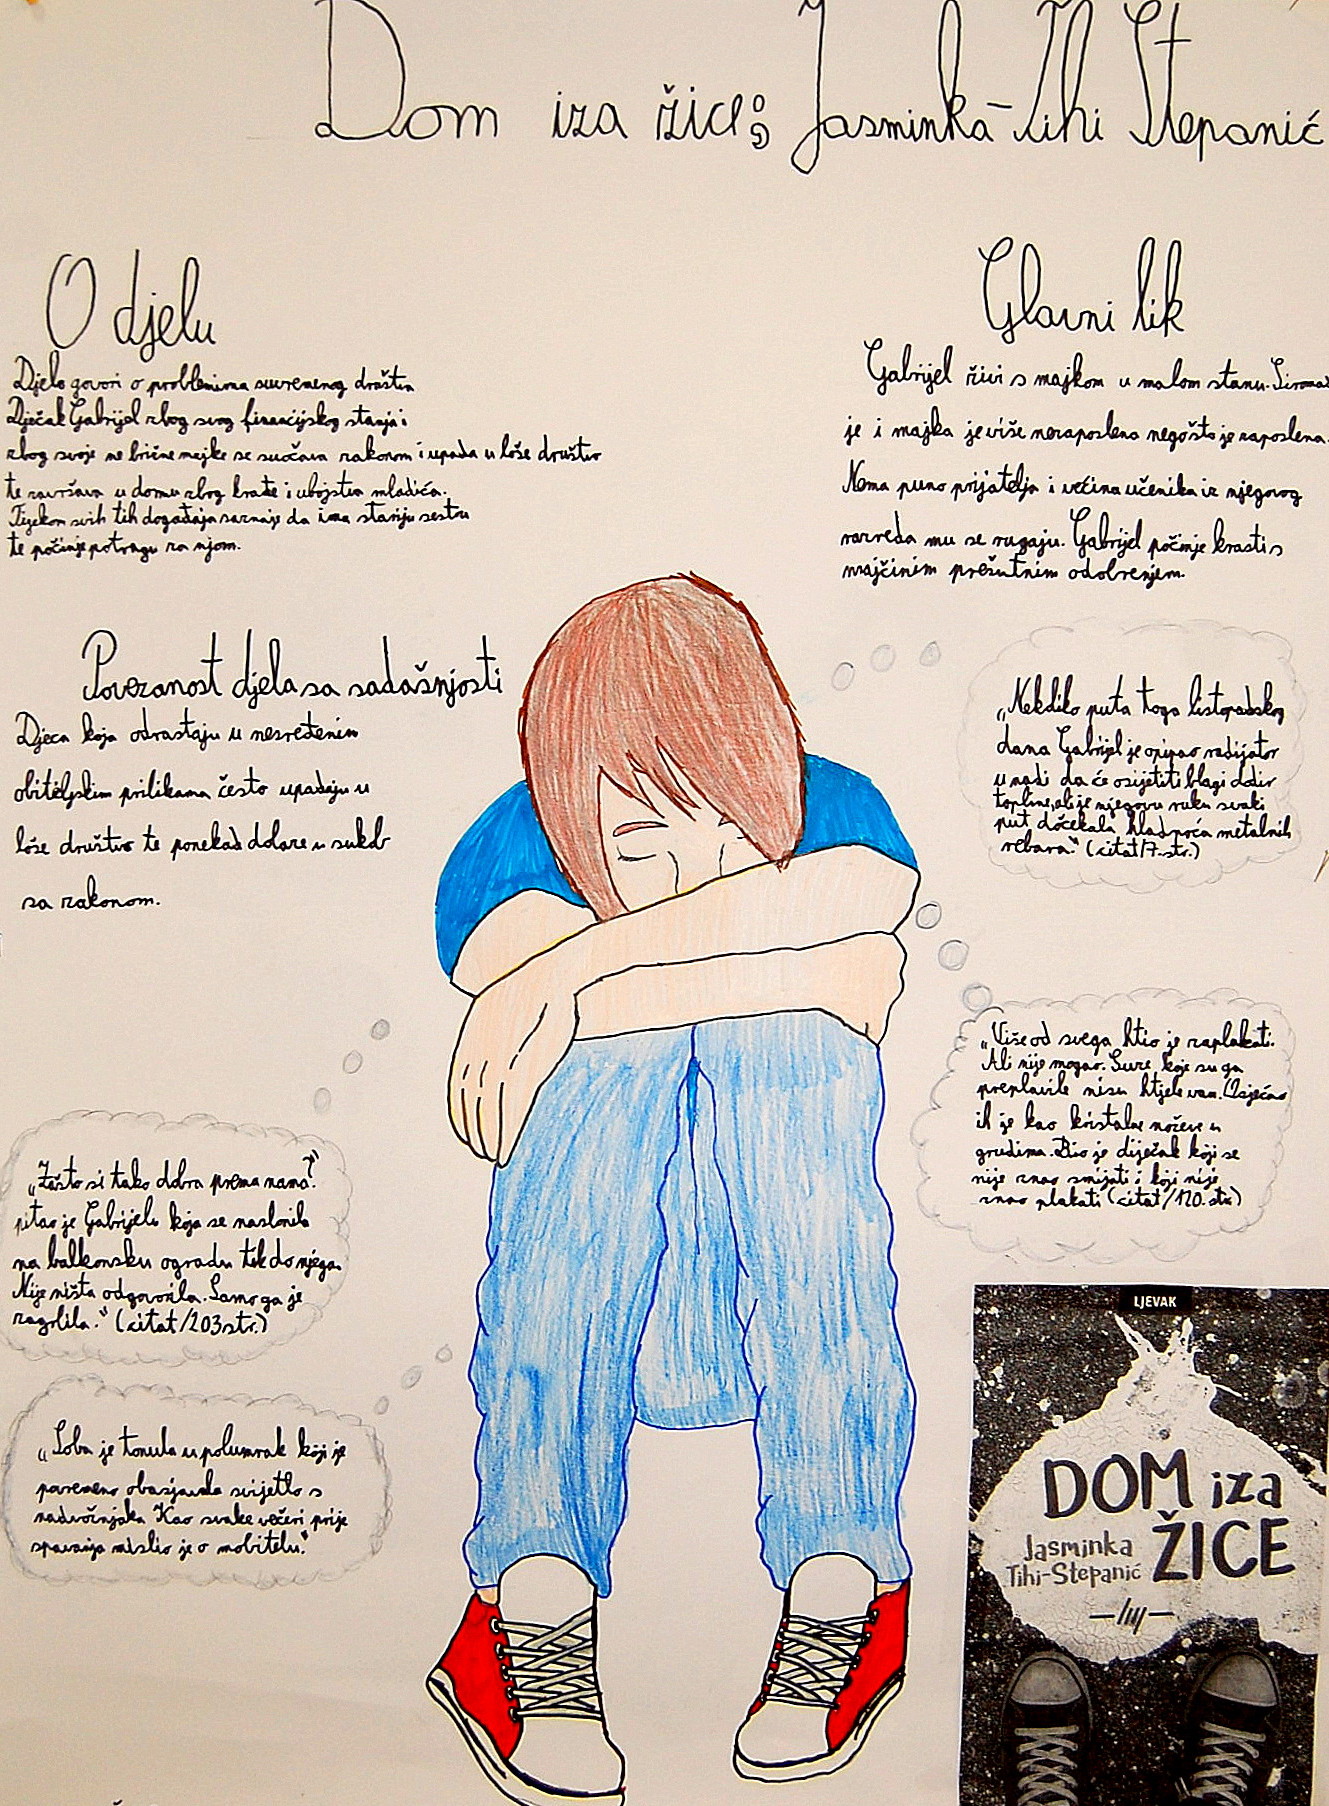 Dom iza žice; Jasminka-Tihi Stepanić
O djelu
Djelo govori o problemima suvremenog društva
Dječak Gabrijel zbog svog financijskog stanja i
zbog svoje ne brižne majke se suočava zakonom i upada u loše društvo
te završava u domu zbog krađe i ubojstva mladića.
Tijekom svih tih događaja saznaje da ima stariju sestru
te počinje potragu za njom.
Glavni lik
Gabrijel živi s majkom u malom stanu. Siromaš
je i majka je više nezaposlena nego što je zaposlena.
Nema puno prijatelja i većina učenika iz njegovog
razreda mu se rugaju. Gabrijel počinje krasti s
majčinim prešutnim odobrenjem.
Povezanost djela sa sadašnjosti
Djeca koja odrastaju u nesređenim
obiteljskim prilikama često upadaju u
loše društvo te ponekad dolaze u sukob
sa zakonom.
„Nekoliko puta toga listopadskog
dana Gabrijel je opipao radijator
u nadi da će osijetiti blagi dodir
topline, ali je njegovu ruku svaki
put dočekala hladnoća metalnih
rebara.“ (citat/7.str.)
„Više od svega htio je zaplakati.
Ali nije mogao. Suze koje su ga
preplavile nisu htjele van. Osjećao
ih je kao kristalne noževe u
grudima. Bio je diječak koji se
nije znao smijati i koji nije
znao plakati (citat/120.str.)
„Zašto si tako dobra prema nama?“
pitao je Gabrijelu koja se naslonila
na balkonsku ogradu tik do njega.
Nije ništa odgovorila. Samo ga je
zagrlila.“ (citat/203str.)
„Soba je tonula u polumrak koji je
povremeno obasjavala svijetlo s
nadvožnjaka Kao svake večeri prije
spavanja mislio je o mobitelu.“
LJEVAK
DOM iza
ŽICE
Jasminka
Tihi-Stepanić